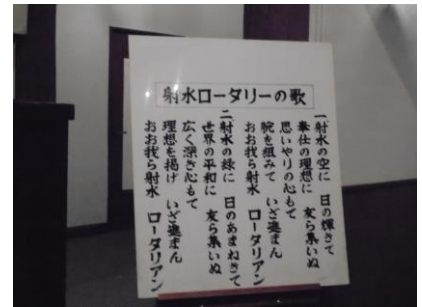 射水ロータリーの歌
一 射水の空に 日の輝きて
奉仕の理想に 友ら集いぬ
思いやりの心もて
腕を組みて いざ進まん
おお我ら射水 ロータリアン
二 射水の緑に 日のあまねきて
世界の平和に 友ら集いぬ
広く深き心もて
理想を掲げ いざ進まん
おお我ら射水 ロータリアン